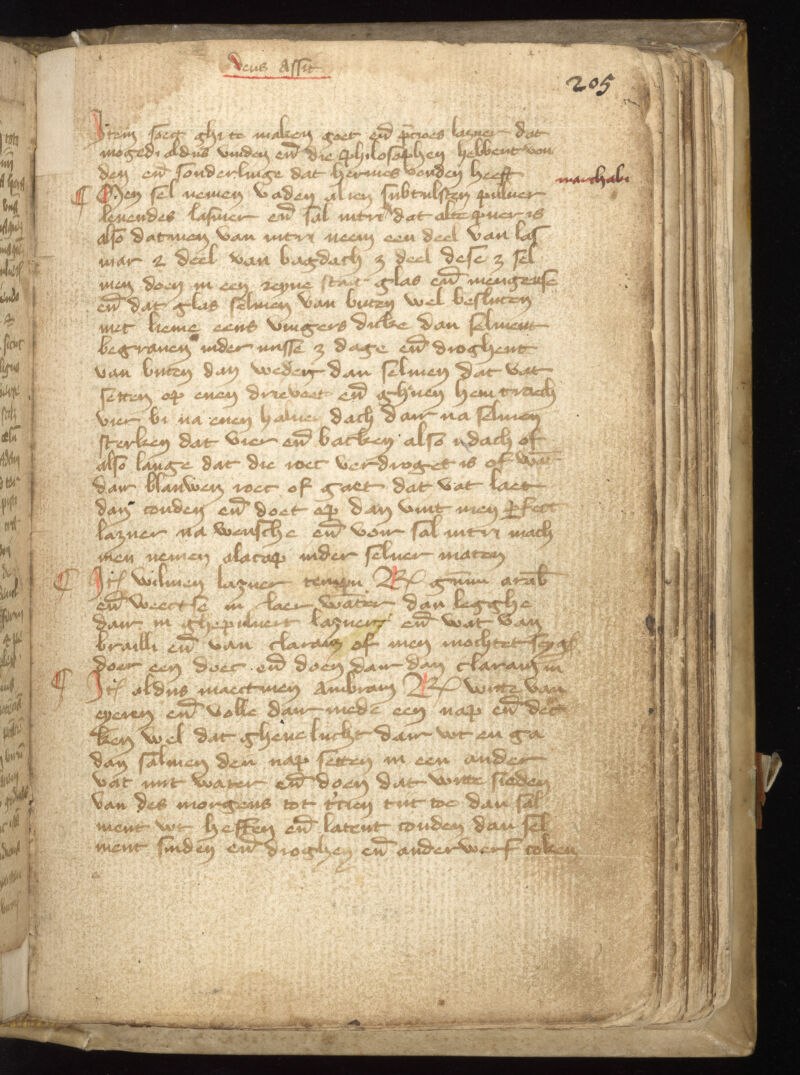 deus assit
205
Item soect ghi te maken goet eñ lazuer dat
mogedi aldus vinden eñ die philosophen hebbent von
den eñ sonderlinge dat hermes vonden heeft
marchabi
¶ Men sel nemen van den alien subtulsten puluer
leuendes lasuer eñ sal dat alte puer is
also datmen van neem een deel van las
mar 2 deel van bagdach 3 deel dese 3 sel
men doen in een reyne starc glas eñ mengense
eñ dat glas selmen van buten wel besluten
met lieme eens vingers dicke dan selment
begrauen inder misse 3 dage eñ droghent
van buten dan weder dan selmen dat vat
setten op enen drievoet eñ gheuen hem traech
vier bi na enen haluen dach dair na selmen
sterken dat vier eñ backen also dach of
also lange dat die roec verdroget is of
dair blauwen roec of gaet dat vat laet
dan couden eñ doet op dan vint men perfect
lazuer na wensche eñ voir sal mach
men nemen alacap inder seluer maten
¶ Itē wilmen lazuer temperen R gummi arab
eñ weectse in claer water dan legghe
dair in ghepuluert lazuer eñ wat van
brasilli eñ van claram of men mochtet
doer een doec eñ doen dair dan claram in
¶ Itē aldus maectmen ambram R witte van
eyeren eñ volle dair mede een nap eñ dec
ken wel dat ghene lucht dair wt en ga
dan salmen den nap setten in een ander
vat mit water eñ doen dat witte sieden
van des morgens tot tcien tijt toe dan sal
ment wt heffen eñ latent couden dan sel
ment sniden eñ droghen eñ anderwerf coken